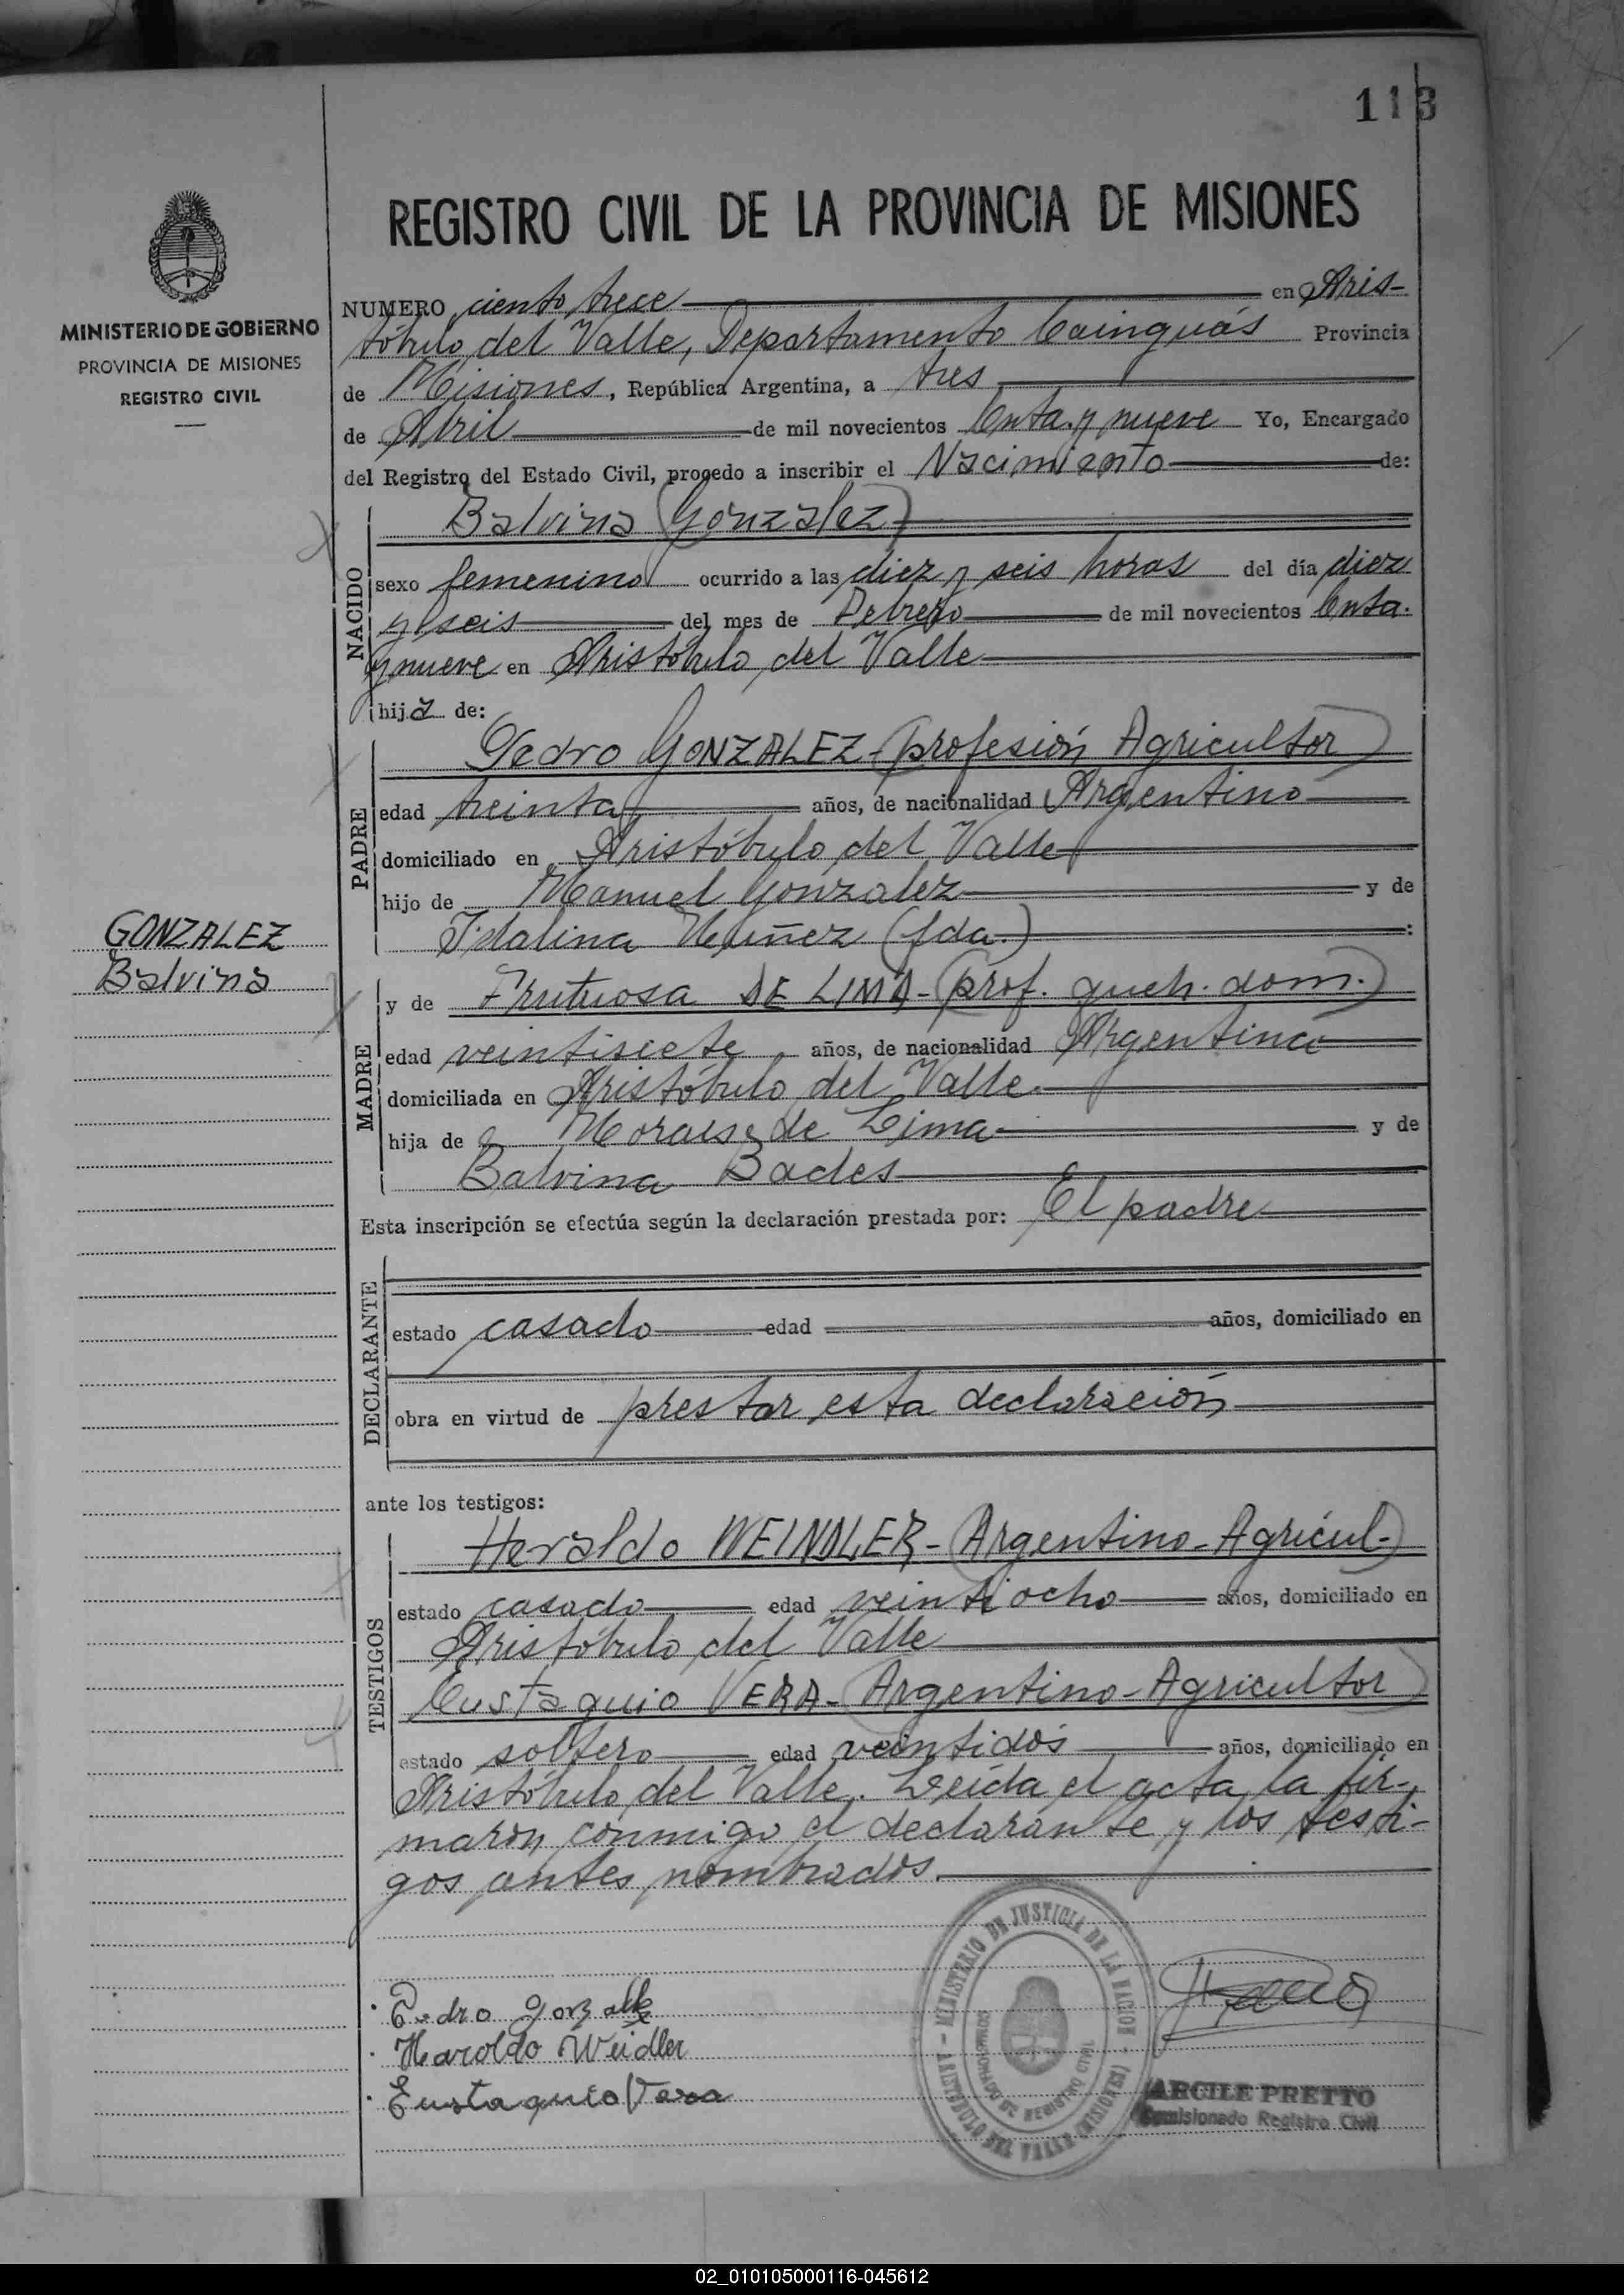 113
REGISTRO CIVIL DE LA PROVINCIA DE MISIONES
MINISTERIO DE GOBIERNO
PROVINCIA DE MISIONES
REGISTRO CIVIL
NUMERO ciento trece en Aris-
tóbulo del Valle, Departamento Cainguás Provincia
de Misiones, República Argentina, a tres
de Abril de mil novecientos Cnta. y nueve Yo, Encargado
del Registro del Estado Civil, procedo a inscribir el Nacimiento de:
NACIDO
Balvina (Gonzalez)
sexo femenino ocurrido a las diez y seis horas del día diez
y seis del mes de Febrero de mil novecientos Cnta.
y nueve en Aristóbulo del Valle
hija de:
PADRE
Pedro GONZALEZ-(profesión Agricultor)
edad treinta años, de nacionalidad Argentino
domiciliado en Aristóbulo del Valle
hijo de Manuel Gonzalez y de
Idalina Nuñez (fda.) :
GONZALEZ
Balvina
MADRE
y de Frutuosa DE LIMA-(prof. queh. dom.)
edad veintisiete años, de nacionalidad Argentina
domiciliada en Aristóbulo del Valle
hija de Moraes de Lima y de
Balvina Bades
Esta inscripción se efectúa según la declaración prestada por: El padre
DECLARANTE
estado casado edad años, domiciliado en
obra en virtud de prestar esta declaración
ante los testigos:
TESTIGOS
Heraldo WEINDLER-(Argentino-Agricul-)
estado casado edad veintiocho años, domiciliado en
Aristóbulo del Valle
Eustaquio VERA-(Argentino-Agricultor)
estado soltero edad veintidós años, domiciliado en
Aristóbulo del Valle. Leída el acta la fir-
maron conmigo el declarante y los testi-
gos antes nombrados.
MINISTERIO DE JUSTICIA DE LA NACION - ARISTOBULO DEL VALLE (MISIONES)
COMISIONADO DE REGISTRO CIVIL
Pedro Gonzalez
Haroldo Weidler
Eustaquio Vera
ARCILE PRETTO
Comisionado Registro Civil
02_010105000116-045612